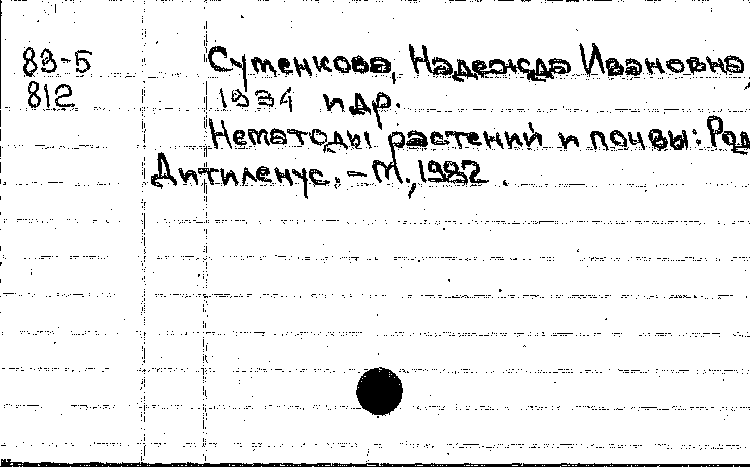 83-5 Сутенкова, Надежда Ивановна,
812 1934 и др.
Нематоды растений и почвы: Род
Дитиленус. – М., 1982.